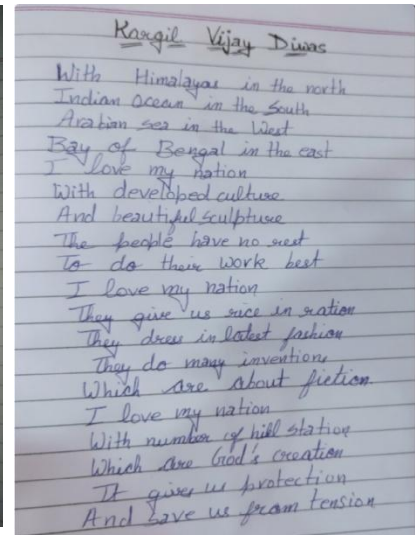 Kargil Vijay Diwas
With Himalayas in the north
Indian Ocean in the South
Arabian sea in the West
Bay of Bengal in the east
I love my nation
With developed culture
And beautiful sculpture
The people have no rest
To do their work best
I love my nation
They give us rice in ration
They dress in latest fashion
They do many inventions
Which are about fiction.
I love my nation
With number of hill station
Which are God's creation
It gives us protection
And save us from tension